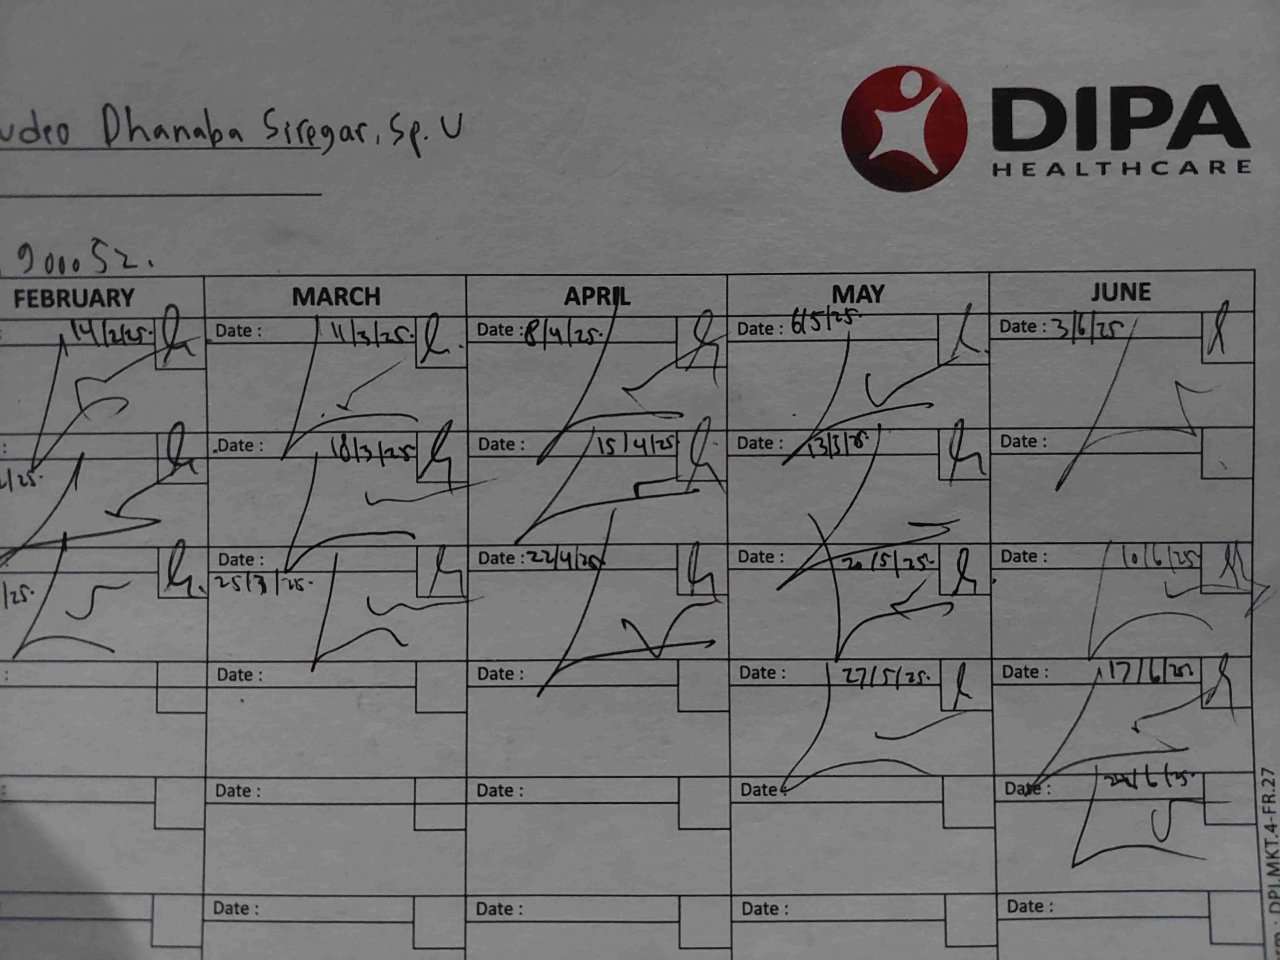 DIPA
HEALTHCARE
Dhanaba Siregar, Sp. U
900052.
FEBRUARY MARCH APRIL MAY JUNE
14/2/25. Date : 11/3/25. Date : 8/4/25. Date : 6/5/25. Date : 3/6/25
Date : 18/3/25 Date : 15/4/25 Date : 13/5/25 Date :
Date : 25/3/25. Date : 22/4/25 Date : 20/5/25. Date : 10/6/25
Date : Date : Date : 27/5/25. Date : 17/6/25
Date : Date : Date : Date :
Date : Date : Date : Date :
DPI.MKT.4-FR.27